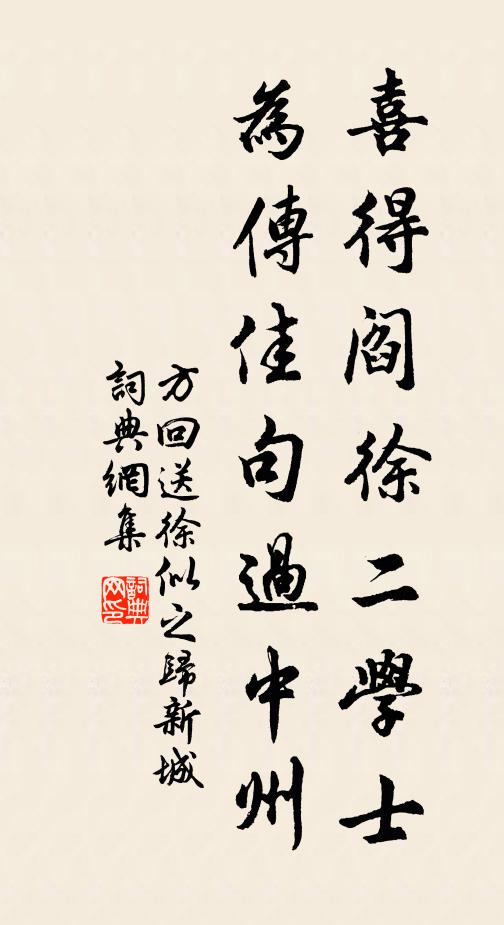 喜得閻徐二學士
為傳佳句過中州
方回送徐似之歸新城
詞典網集
詞典
网印